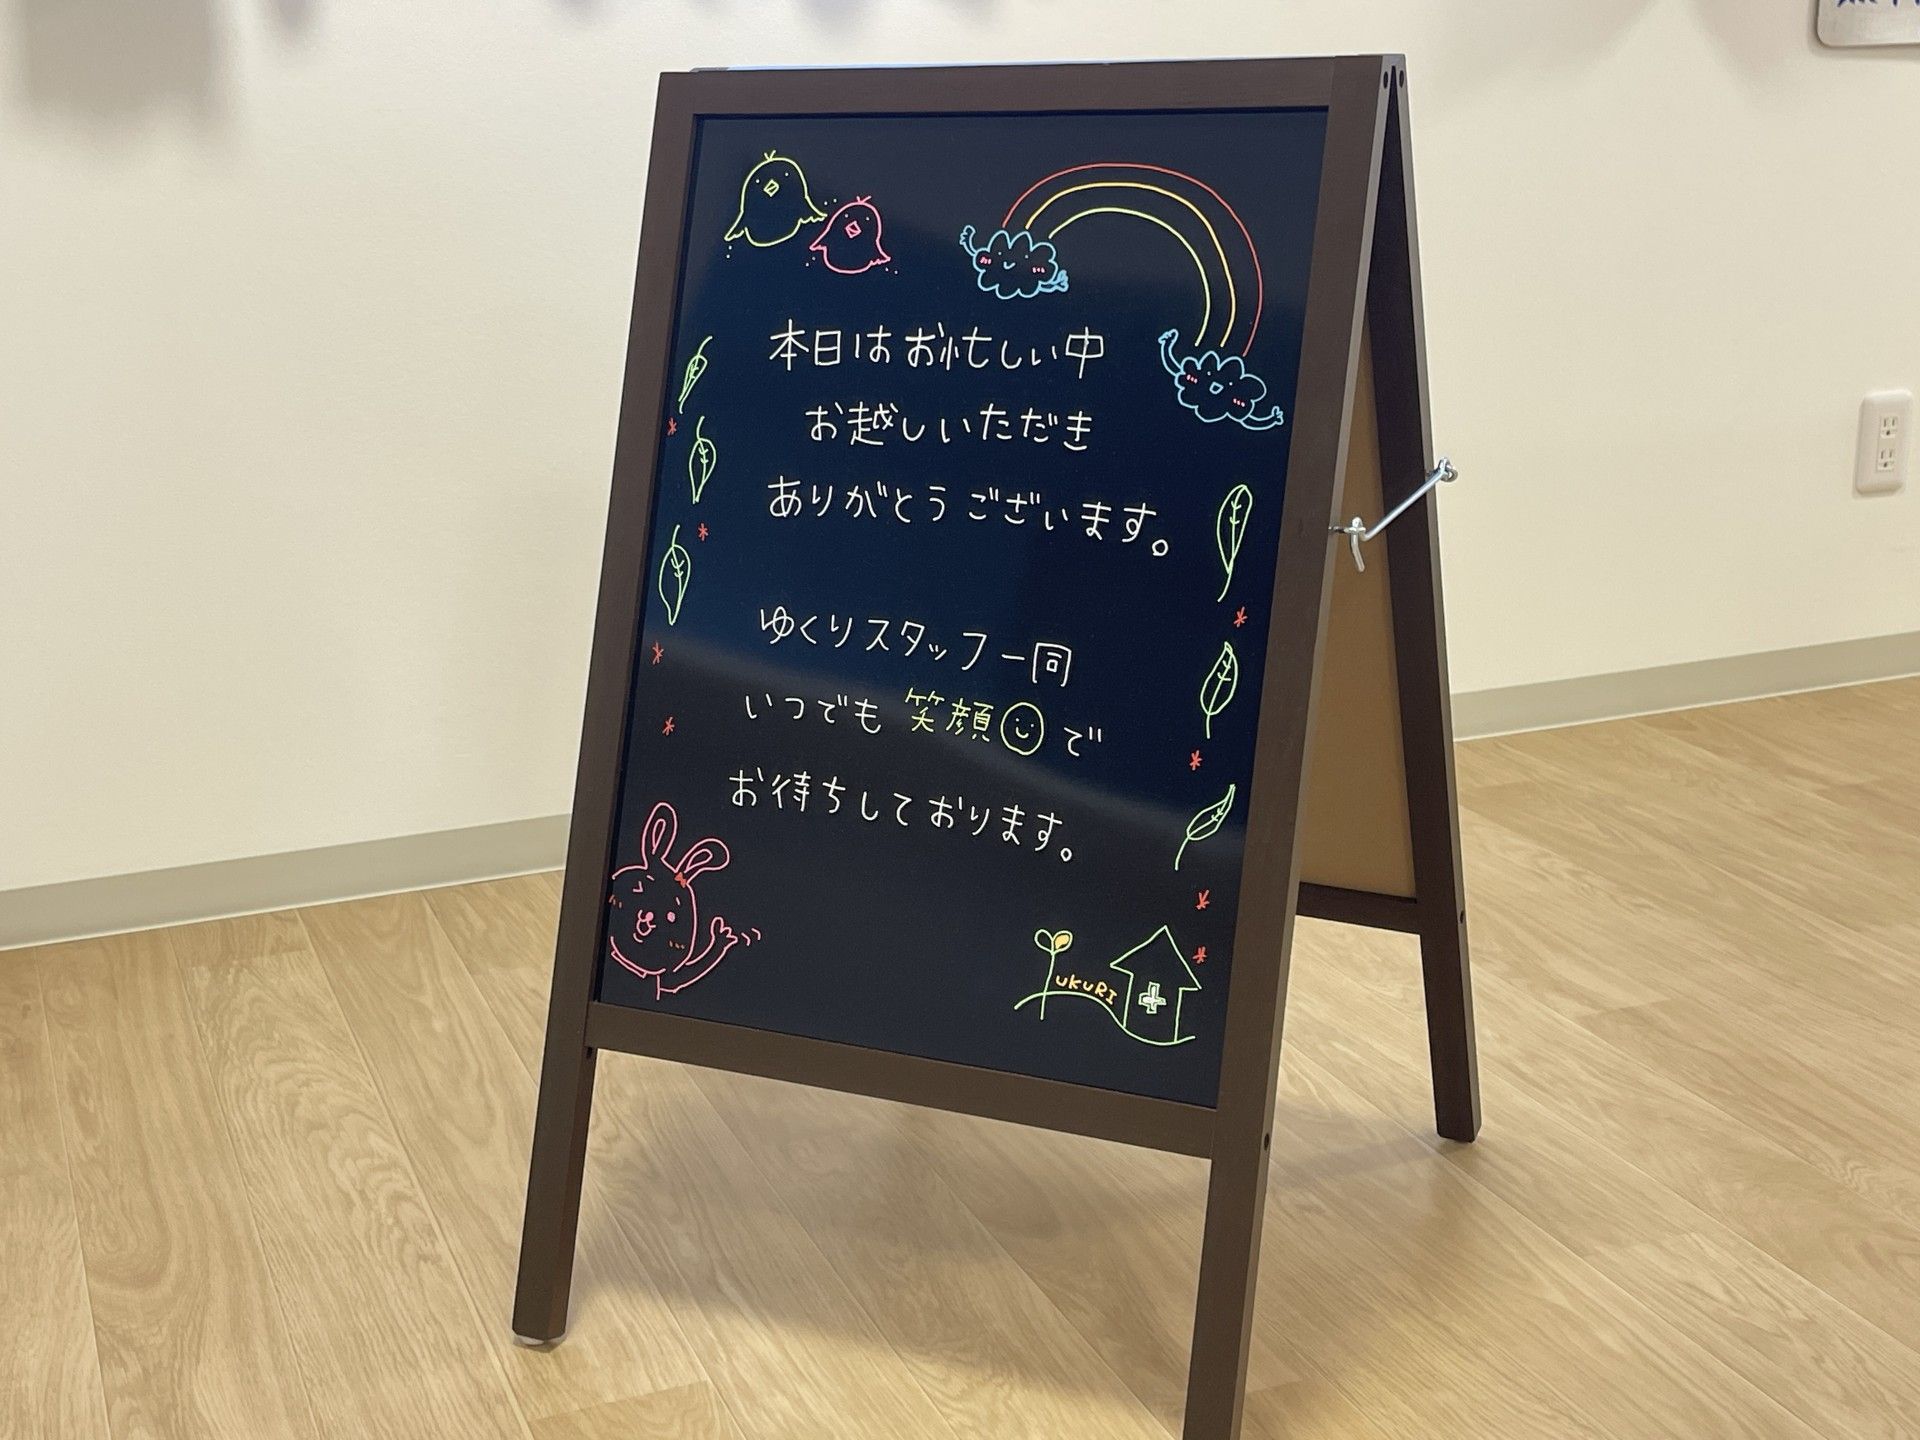 本日はお忙しい中
お越しいただき
ありがとうございます。
ゆくりスタッフ一同
いつでも笑顔で
お待ちしております。
YUKURI